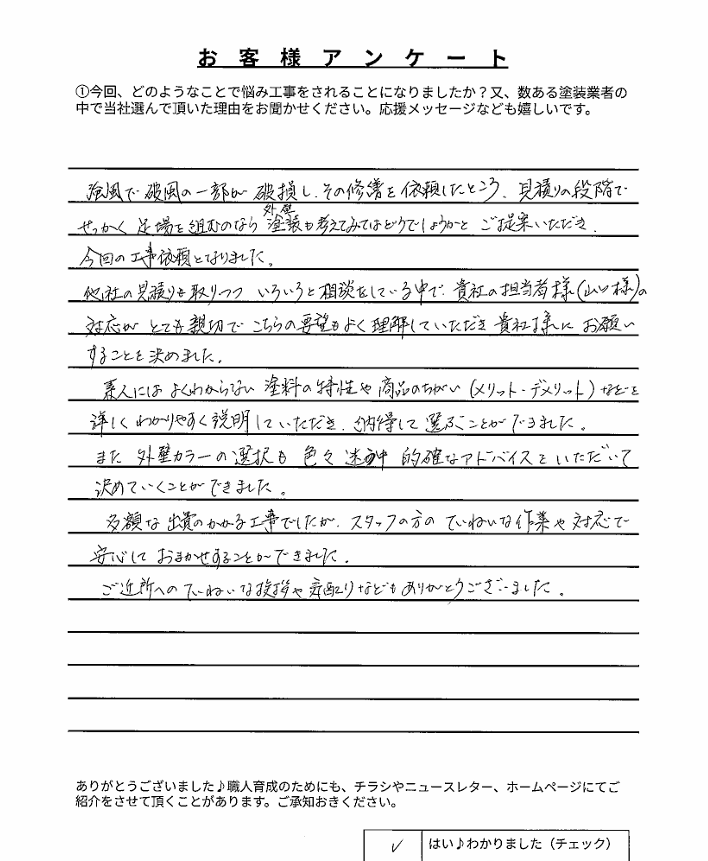 お客様アンケート
①今回、どのようなことで悩み工事をされることになりましたか？又、数ある塗装業者の
中で当社選んで頂いた理由をお聞かせください。応援メッセージなども嬉しいです。
強風で破風の一部が破損し、その修繕を依頼したところ、見積りの段階で
外壁
せっかく足場を組むのなら塗装も考えてみてはどうでしょうかとご提案いただき、
今回の工事依頼となりました。
他社の見積りも取りつついろいろと相談をしている中で、貴社の担当者様(山口様)の
対応がとても親切でこちらの要望もよく理解していただき貴社様にお願い
することを決めました。
素人にはよくわからない塗料の特性や商品のちがい(メリット・デメリット)などを
詳しくわかりやすく説明していただき、納得して選ぶことができました。
また外壁カラーの選択も色々迷う中的確なアドバイスをいただいて
決めていくことができました。
多額な出費のかかる工事でしたが、スタッフの方のていねいな作業や対応で
安心しておまかせすることができました。
ご近所へのていねいな挨拶や気配りなどもありがとうございました。
ありがとうございました♪職人育成のためにも、チラシやニュースレター、ホームページにてご
紹介をさせて頂くことがあります。ご承知おきください。
✓ はい♪わかりました（チェック）